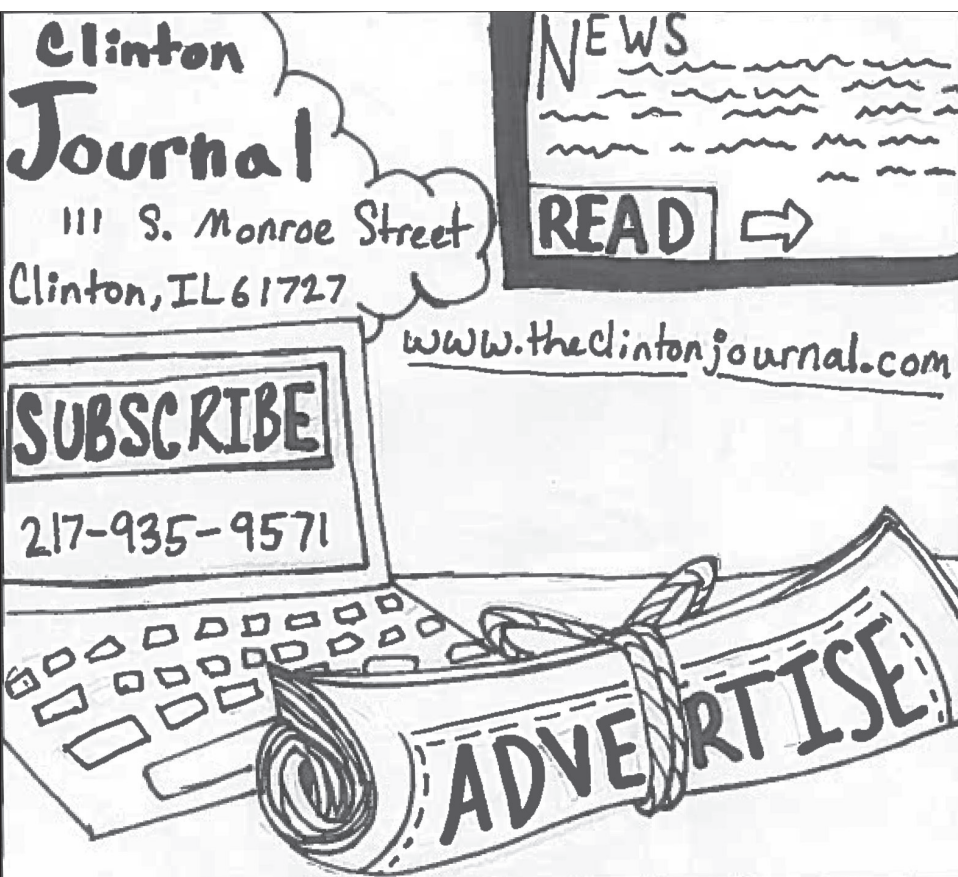 Clinton
Journal
111 S. Monroe Street
Clinton, IL 61727
NEWS
READ
www.theclintonjournal.com
SUBSCRIBE
217-935-9571
ADVERTISE